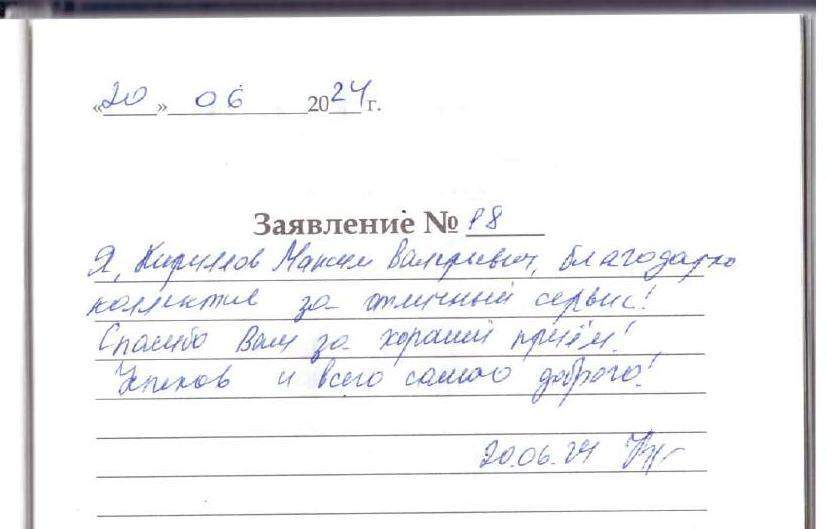 «20» 06 2024 г.
Заявление № 18
Я, Кириллов Максим Валериевич, благодарю
коллектив за отличный сервис!
Спасибо Вам за хороший приём!
Успехов и всего самого доброго!
20.06.24